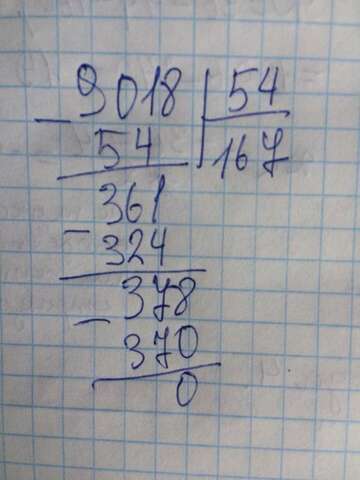 - 9018 | 54
54 | 167
361
- 324
378
- 370
0